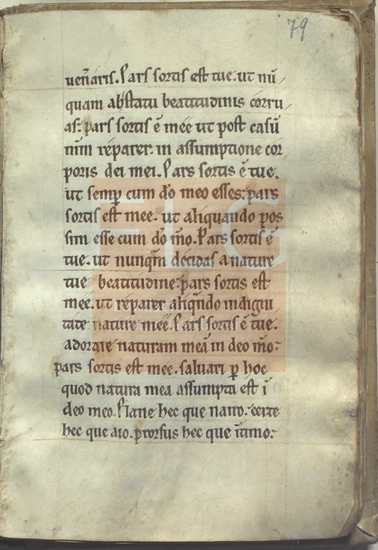 79
uenĩaris. Pars sortis est tue. ut nũ
quam abstatu beatitudinis corru
as: pars sortis ẽ mee ut post casũ
nim reparer. in assumptione cor
poris dei mei. Pars sortis ẽ tue.
ut semp cum dõ meo esses: pars
sortis est mee. ut aliquando pos
sim esse cum dõ mõ. Pars sortis ẽ
tue. ut nunqm̃ decidas a nature
tue beatitudine: pars sortis est
mee. ut reparer aliqñdo in digni
tate nature mee. Pars sortis ẽ tue.
adorare naturam meã in deo mõ:
pars sortis est mee. saluari p hoc
quod natura mea assumpta est ĩ
deo meo. Plane hec que narro. certe
hec que aio. prorsus hec que ĩtimo.